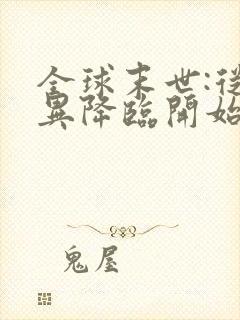 全球末世:從
異降臨開始
鬼屋